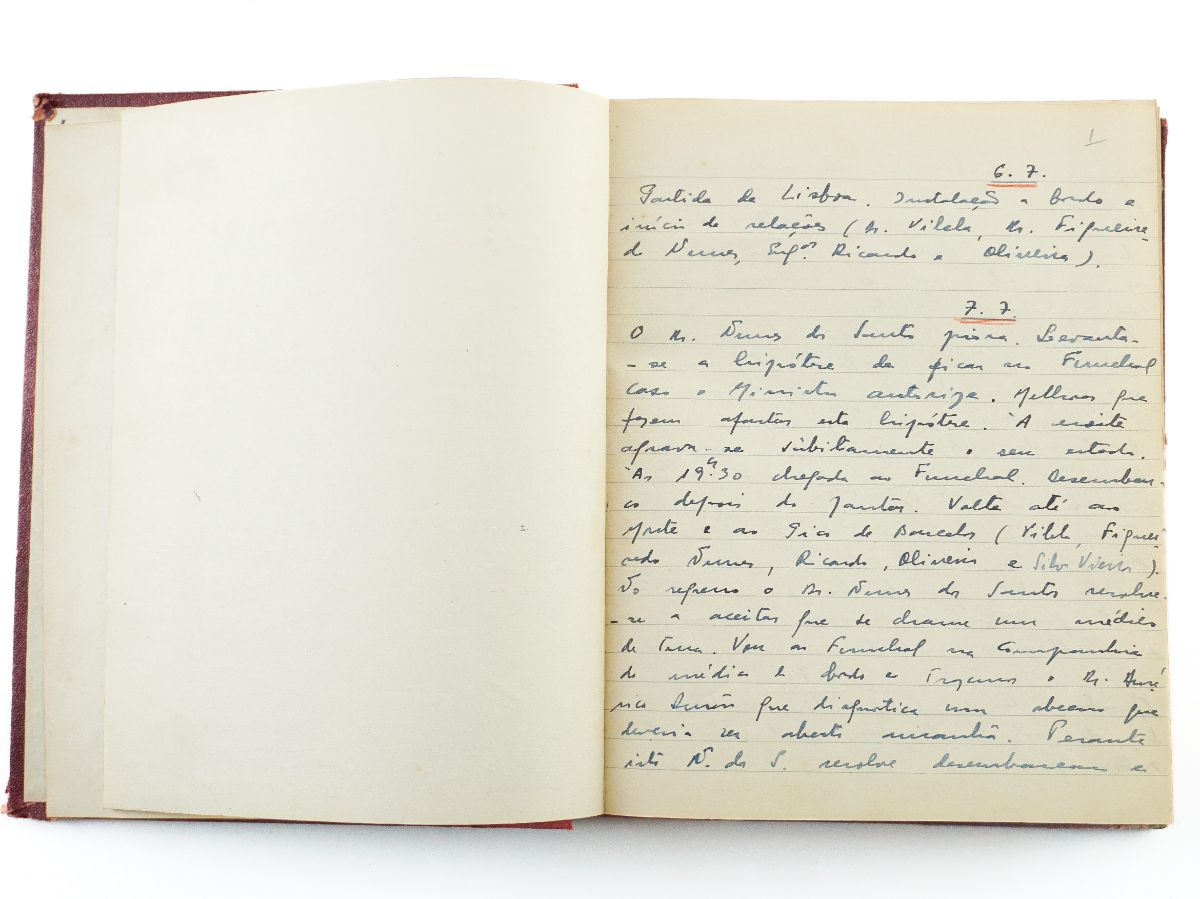 1
6. 7.
Partida de Lisboa. Instalação a bordo e
início de relações (Dr. Vilela, Dr. Figueire-
do Nunes, Engos. Ricardo e Oliveira).
7. 7.
O Dr. Nunes dos Santos piora. Levanta-
-se a hipótese de ficar no Funchal
caso o Ministro autorize. Melhoras que
fazem afastar esta hipótese. À noite
agrava-se súbitamente o seu estado.
Às 19h.30 chegada ao Funchal. Desembar-
co depois do jantar. Volta até ao
Monte e ao Pico de Barcelos (Vilela, Figuei-
redo Nunes, Ricardo, Oliveira e Silva Vieira).
No regresso o Dr. Nunes dos Santos resolve-
-se a aceitar que se chame um médico
de terra. Vou ao Funchal na companhia
do médico de bordo e trazemos o Dr. Amé-
rico Durão que diagnostica um abcesso que
deveria ser aberto amanhã. Perante
isto N. dos S. resolve desembarcar e